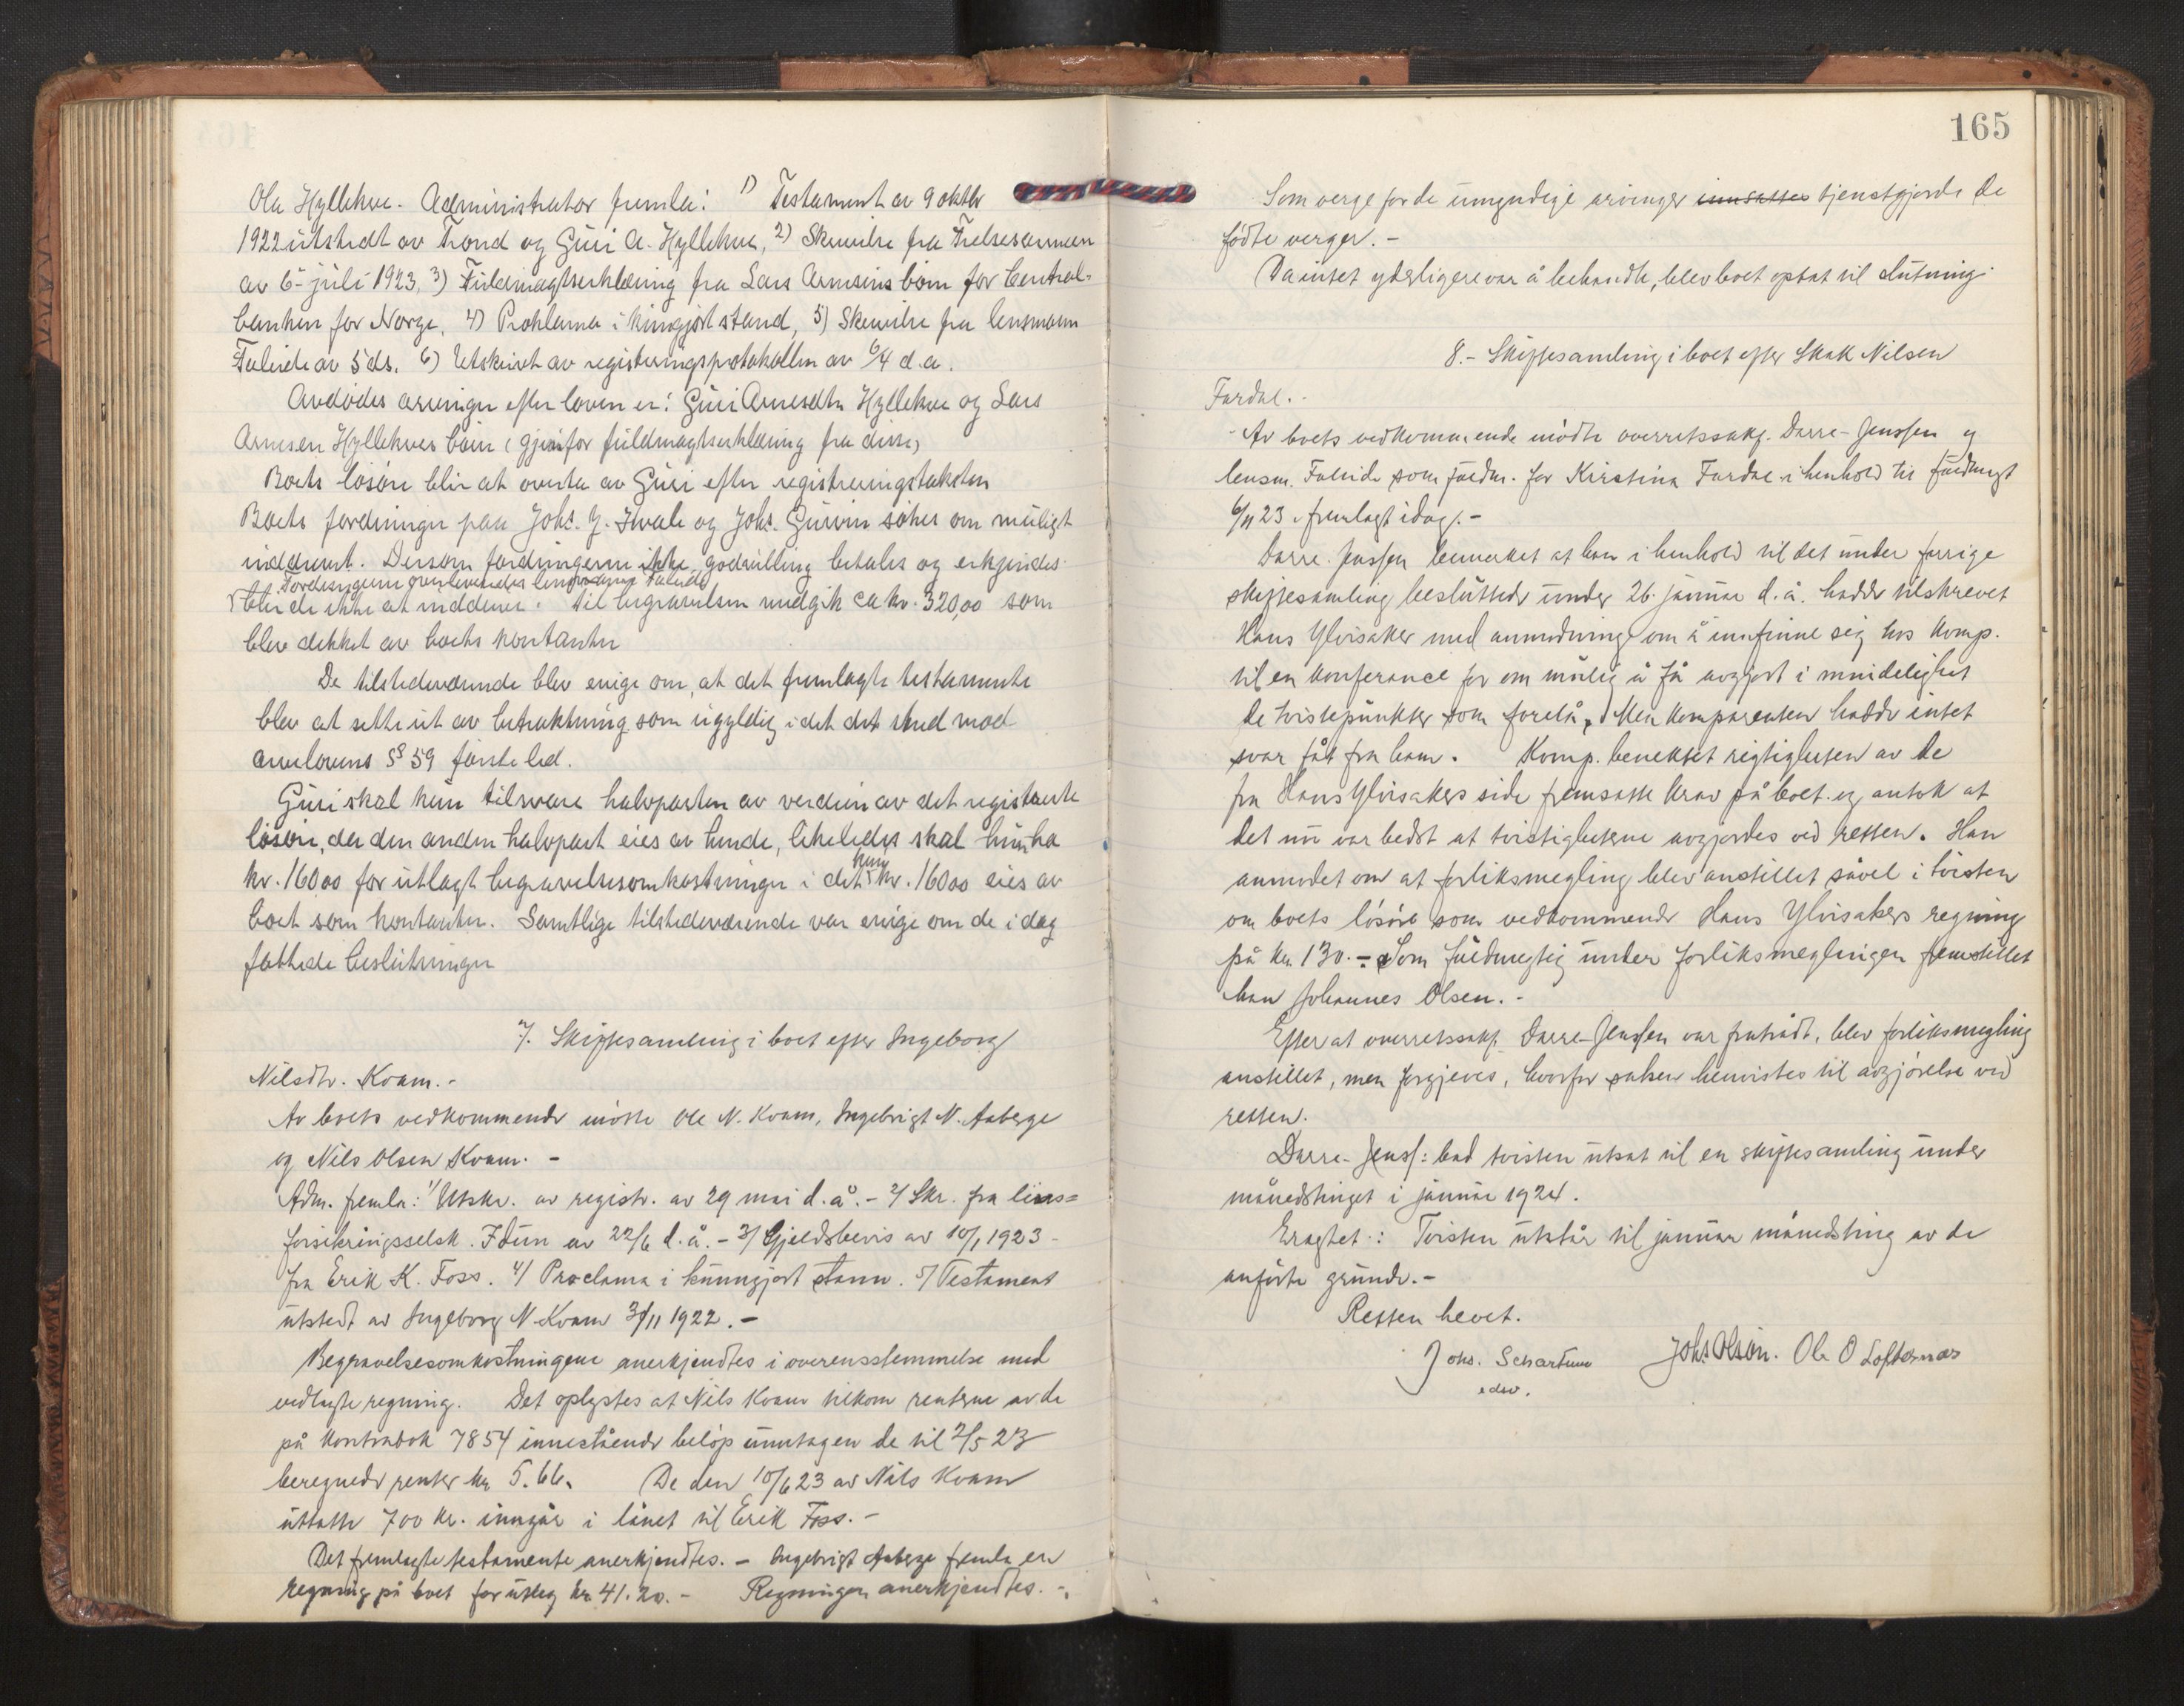 Ola Hyllekve. Administrator fremla: 1) Testament av 9 oktbr
1922 utstedt av Trond og Guri A. Hyllekve, 2) Skrivelse fra Frelsesarmeen
av 6- juli 1923, 3) Fuldmagtserklæring fra Lars Arnesens barn for Central-
banken for Norge, 4) Proklama i kungjort stand, 5) Skrivelse fra lensmann
Faleide av 5 ds. 6) Utskrivt av registreringsprotokollen av 6/4 d.a.
Avdødes arvinger efter loven er: Guri Arnesdtr Hyllekve og Lars
Arnesen Hyllekves barn (gjenfor fuldmagtserklæring fra disse)
Boets løsøre blir at overta av Guri efter registreringstaksten
Boets fordringer paa Johs. J. Kvale og Johs. Gurvin søkes om muligt
inddrevet. Dersom fordringerne ikke godvillig betales og erkjendes
Fordringerne overleveredes lensmann Faleide
blir de ikke at inddrive. Til begravelsen medgik ca kr. 320,00 som
blev dekket av boets kontanter
De tilstedeværende blev enige om, at det fremlagte testamente
blev at sette ut av betraktning som ugyldig idet det stred mod
arvelovens § 59 første led.
Guri skal kun tilsvare halvparten av verdien av det registrerte
løsøre, da den anden halvpart eies av hende, likeledes skal hun ha
kr. 160 00 for utlagt begravelsesomkostninger i det kun kr. 160 00 eies av
boet som kontanter. Samtlige tilstedeværende var enige om de i dag
fattede beslutninger
7. Skiftesamling i boet efter Ingeborg
Nilsdtr. Kvam.-
Av boets vedkommende møtte Ole N. Kvam, Ingebrigt N. Aaberge
og Nils Olsen Kvam. -
Adm. fremla: 1/ Utskr. av registr. av 29 mai d.å. - 2/ Skr. fra livs=
forsikringsselsk. Idun av 22/6 d.å. - 3/ Gjeldsbevis av 10/1 1923 -
fra Erik K. Foss. 4/ Proclama i kunngjort stann. 5/ Testament
utstedt av Ingeborg N. Kvam 3/11 1922. -
Begravelsesomkostningene anerkjendtes i overensstemmelse med
vedlagte regning. Det oplystes at Nils Kvam tilkom rentene av de
på kontrabok 7854 innestående beløp unntagen de til 2/5 23
beregnede renter kr 5.66. De den 10/6 23 av Nils Kvam
uttatte 700 kr. inngår i lånet til Erik Foss. -
Det fremlagte testamente anerkjendtes. - Ingebrigt Aaberge fremla en
regning på boet for utleg kr. 41.20. - Regningen anerkjendtes. -
165
Som verge for de umyndige arvinger innsattes tjenstgjorde de
fødte verger. -
Da intet yderligere var å behandle, blev boet optat til slutning.
8. - Skiftesamling i boet efter Skak Nilsen
Fardal. -
Av boets vedkommende mødte overretssakf. Darre-Jenssen og
lensm. Faleide som fuldm. for Kirstina Fardal i henhold til fuldmagt
6/11 23, fremlagt idag. -
Darre-Jenssen bemerket at han i henhold til det under forrige
skiftesamling besluttede under 26. januar d. å. hadde tilskrevet
Hans Ylvisaker med anmodning om å innfinne sig hos Komp.
til en konferance for om mulig å få avgjort i mindelighet
de tvistepunkter som forelå. Men komparenten hadde intet
svar fåt fra ham. Komp. benektet rigtigheten av de
fra Hans Ylvisakers side fremsatte krav på boet og antok at
det nu var bedst at tvistighetene avgjordes ved retten. Han
anmodet om at forliksmegling blev anstillet såvel i tvisten
om boets løsøre som vedkommende Hans Ylvisakers regning
på kr. 130.- Som fuldmegtig under forliksmeglingen fremstillet
han Johannes Olsen. -
Efter at overretssakf. Darre-Jenssen var fratrådt, blev forliksmegling
anstillet, men forgjeves, hvorfor saken henvistes til avgjørelse ved
retten.
Darre-Jenss: bad tvisten utsat til en skiftesamling under
månedstinget i januar 1924.
Eragtet: Tvisten utstår til januar månedsting av de
anførte grunde. -
Retten hevet.
Johs. Schartum
edsv.
Johs Olsøn. Ole O Loftesnæs